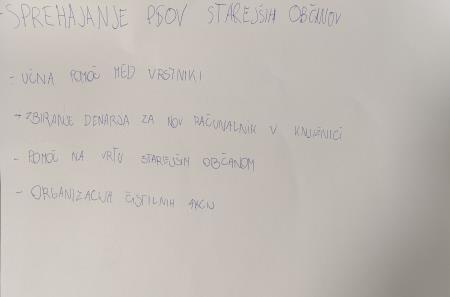 - SPREHAJANJE PSOV STAREJŠIH OBČANOV
- UČNA POMOČ MED VRSTNIKI
- ZBIRANJE DENARJA ZA NOV RAČUNALNIK V KNJIŽNICI
- POMOČ NA VRTU STAREJŠIM OBČANOM
- ORGANIZACIJA ČISTILNIH AKCIJ